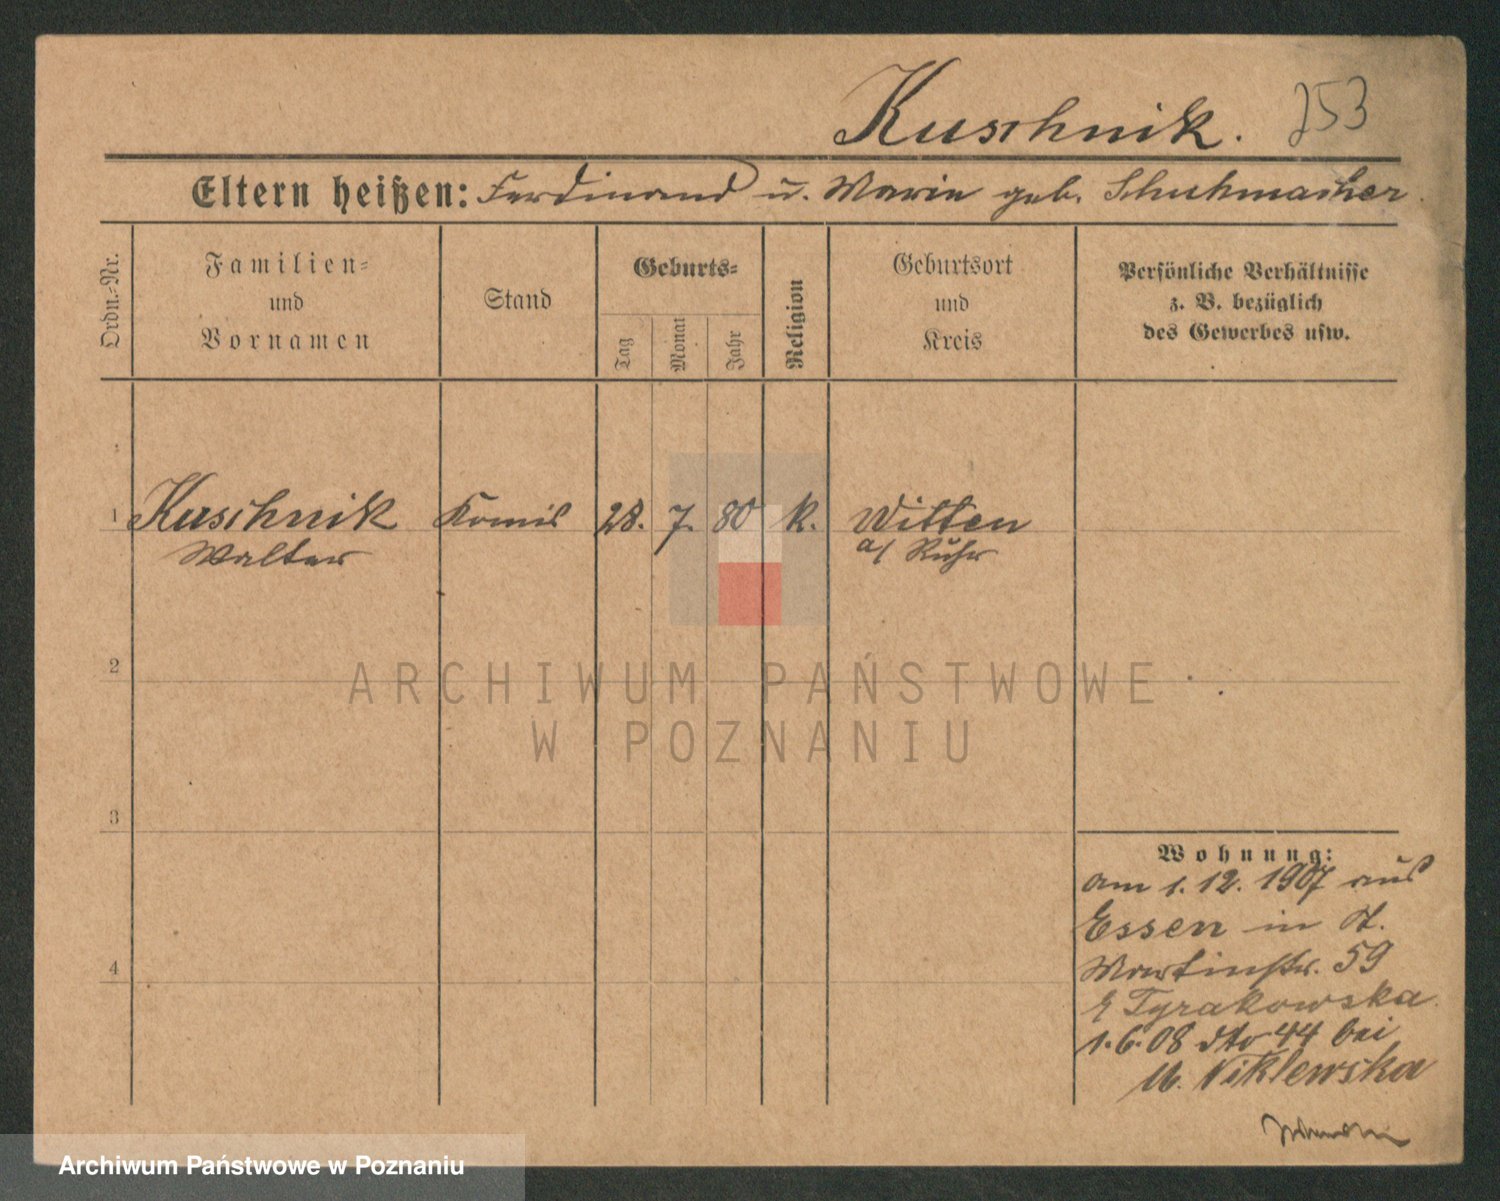 Kuschnik. 253
Eltern heißen: Ferdinand u. Marie geb. Schuhmacher.
Ordn.-Nr.
Familien-
und
Vornamen
Stand
Geburts-
Tag
Monat
Jahr
Religion
Geburtsort
und
Kreis
Persönliche Verhältnisse
z. B. bezüglich
des Gewerbes usw.
1 Kuschnik Komis 28. 7. 80 k. Witten
Walter a/ Ruhr
2
ARCHIWUM PAŃSTWOWE
W POZNANIU
3
Wohnung:
am 1.12.1907 aus
Essen in
Martinstr. 59
Tyrakowska
4
1.6.08 dto 44 bei
Niklewska
Archiwum Państwowe w Poznaniu